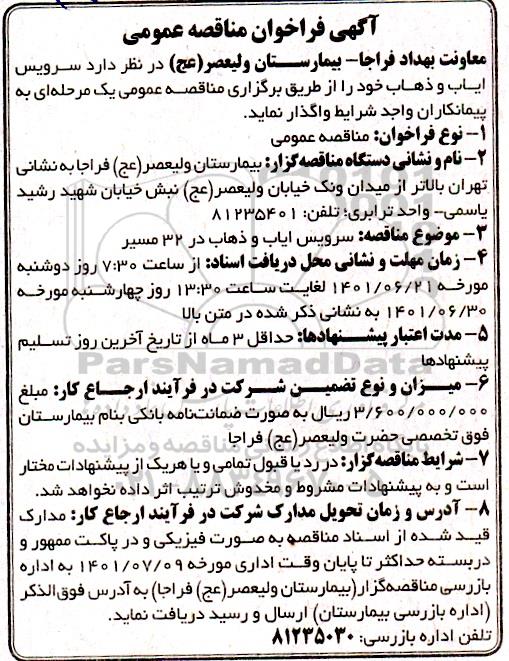 آگهی فراخوان مناقصه عمومی
معاونت بهداد فراجا- بیمارستان ولیعصر(عج) در نظر دارد سرویس
ایاب و ذهاب خود را از طریق برگزاری مناقصه عمومی یک مرحله‌ای به
پیمانکاران واجد شرایط واگذار نماید.
۱- نوع فراخوان: مناقصه عمومی
۲- نام و نشانی دستگاه مناقصه‌گزار: بیمارستان ولیعصر(عج) فراجا به نشانی
تهران بالاتر از میدان ونک خیابان ولیعصر(عج) نبش خیابان شهید رشید
یاسمی- واحد ترابری؛ تلفن: ۸۱۲۳۵۴۰۱
۳- موضوع مناقصه: سرویس ایاب و ذهاب در ۳۲ مسیر
۴- زمان مهلت و نشانی محل دریافت اسناد: از ساعت ۷:۳۰ روز دوشنبه
مورخه ۱۴۰۱/۰۶/۲۱ لغایت ساعت ۱۳:۳۰ روز چهارشنبه مورخه
۱۴۰۱/۰۶/۳۰ به نشانی ذکر شده در متن بالا
۵- مدت اعتبار پیشنهادها: حداقل ۳ ماه از تاریخ آخرین روز تسلیم
پیشنهادها
۶- میزان و نوع تضمین شرکت در فرآیند ارجاع کار: مبلغ
۳/۶۰۰/۰۰۰/۰۰۰ ریال به صورت ضمانت‌نامه بانکی بنام بیمارستان
فوق تخصصی حضرت ولیعصر(عج) فراجا
۷- شرایط مناقصه‌گزار: در رد یا قبول تمامی و یا هریک از پیشنهادات مختار
است و به پیشنهادات مشروط و مخدوش ترتیب اثر داده نخواهد شد.
۸- آدرس و زمان تحویل مدارک شرکت در فرآیند ارجاع کار: مدارک
قید شده از اسناد مناقصه به صورت فیزیکی و در پاکت ممهور و
دربسته حداکثر تا پایان وقت اداری مورخه ۱۴۰۱/۰۷/۰۹ به اداره
بازرسی مناقصه‌گزار(بیمارستان ولیعصر(عج) فراجا) به آدرس فوق‌الذکر
(اداره بازرسی بیمارستان) ارسال و رسید دریافت نماید.
تلفن اداره بازرسی: ۸۱۲۳۵۰۳۰
ParsNamadData